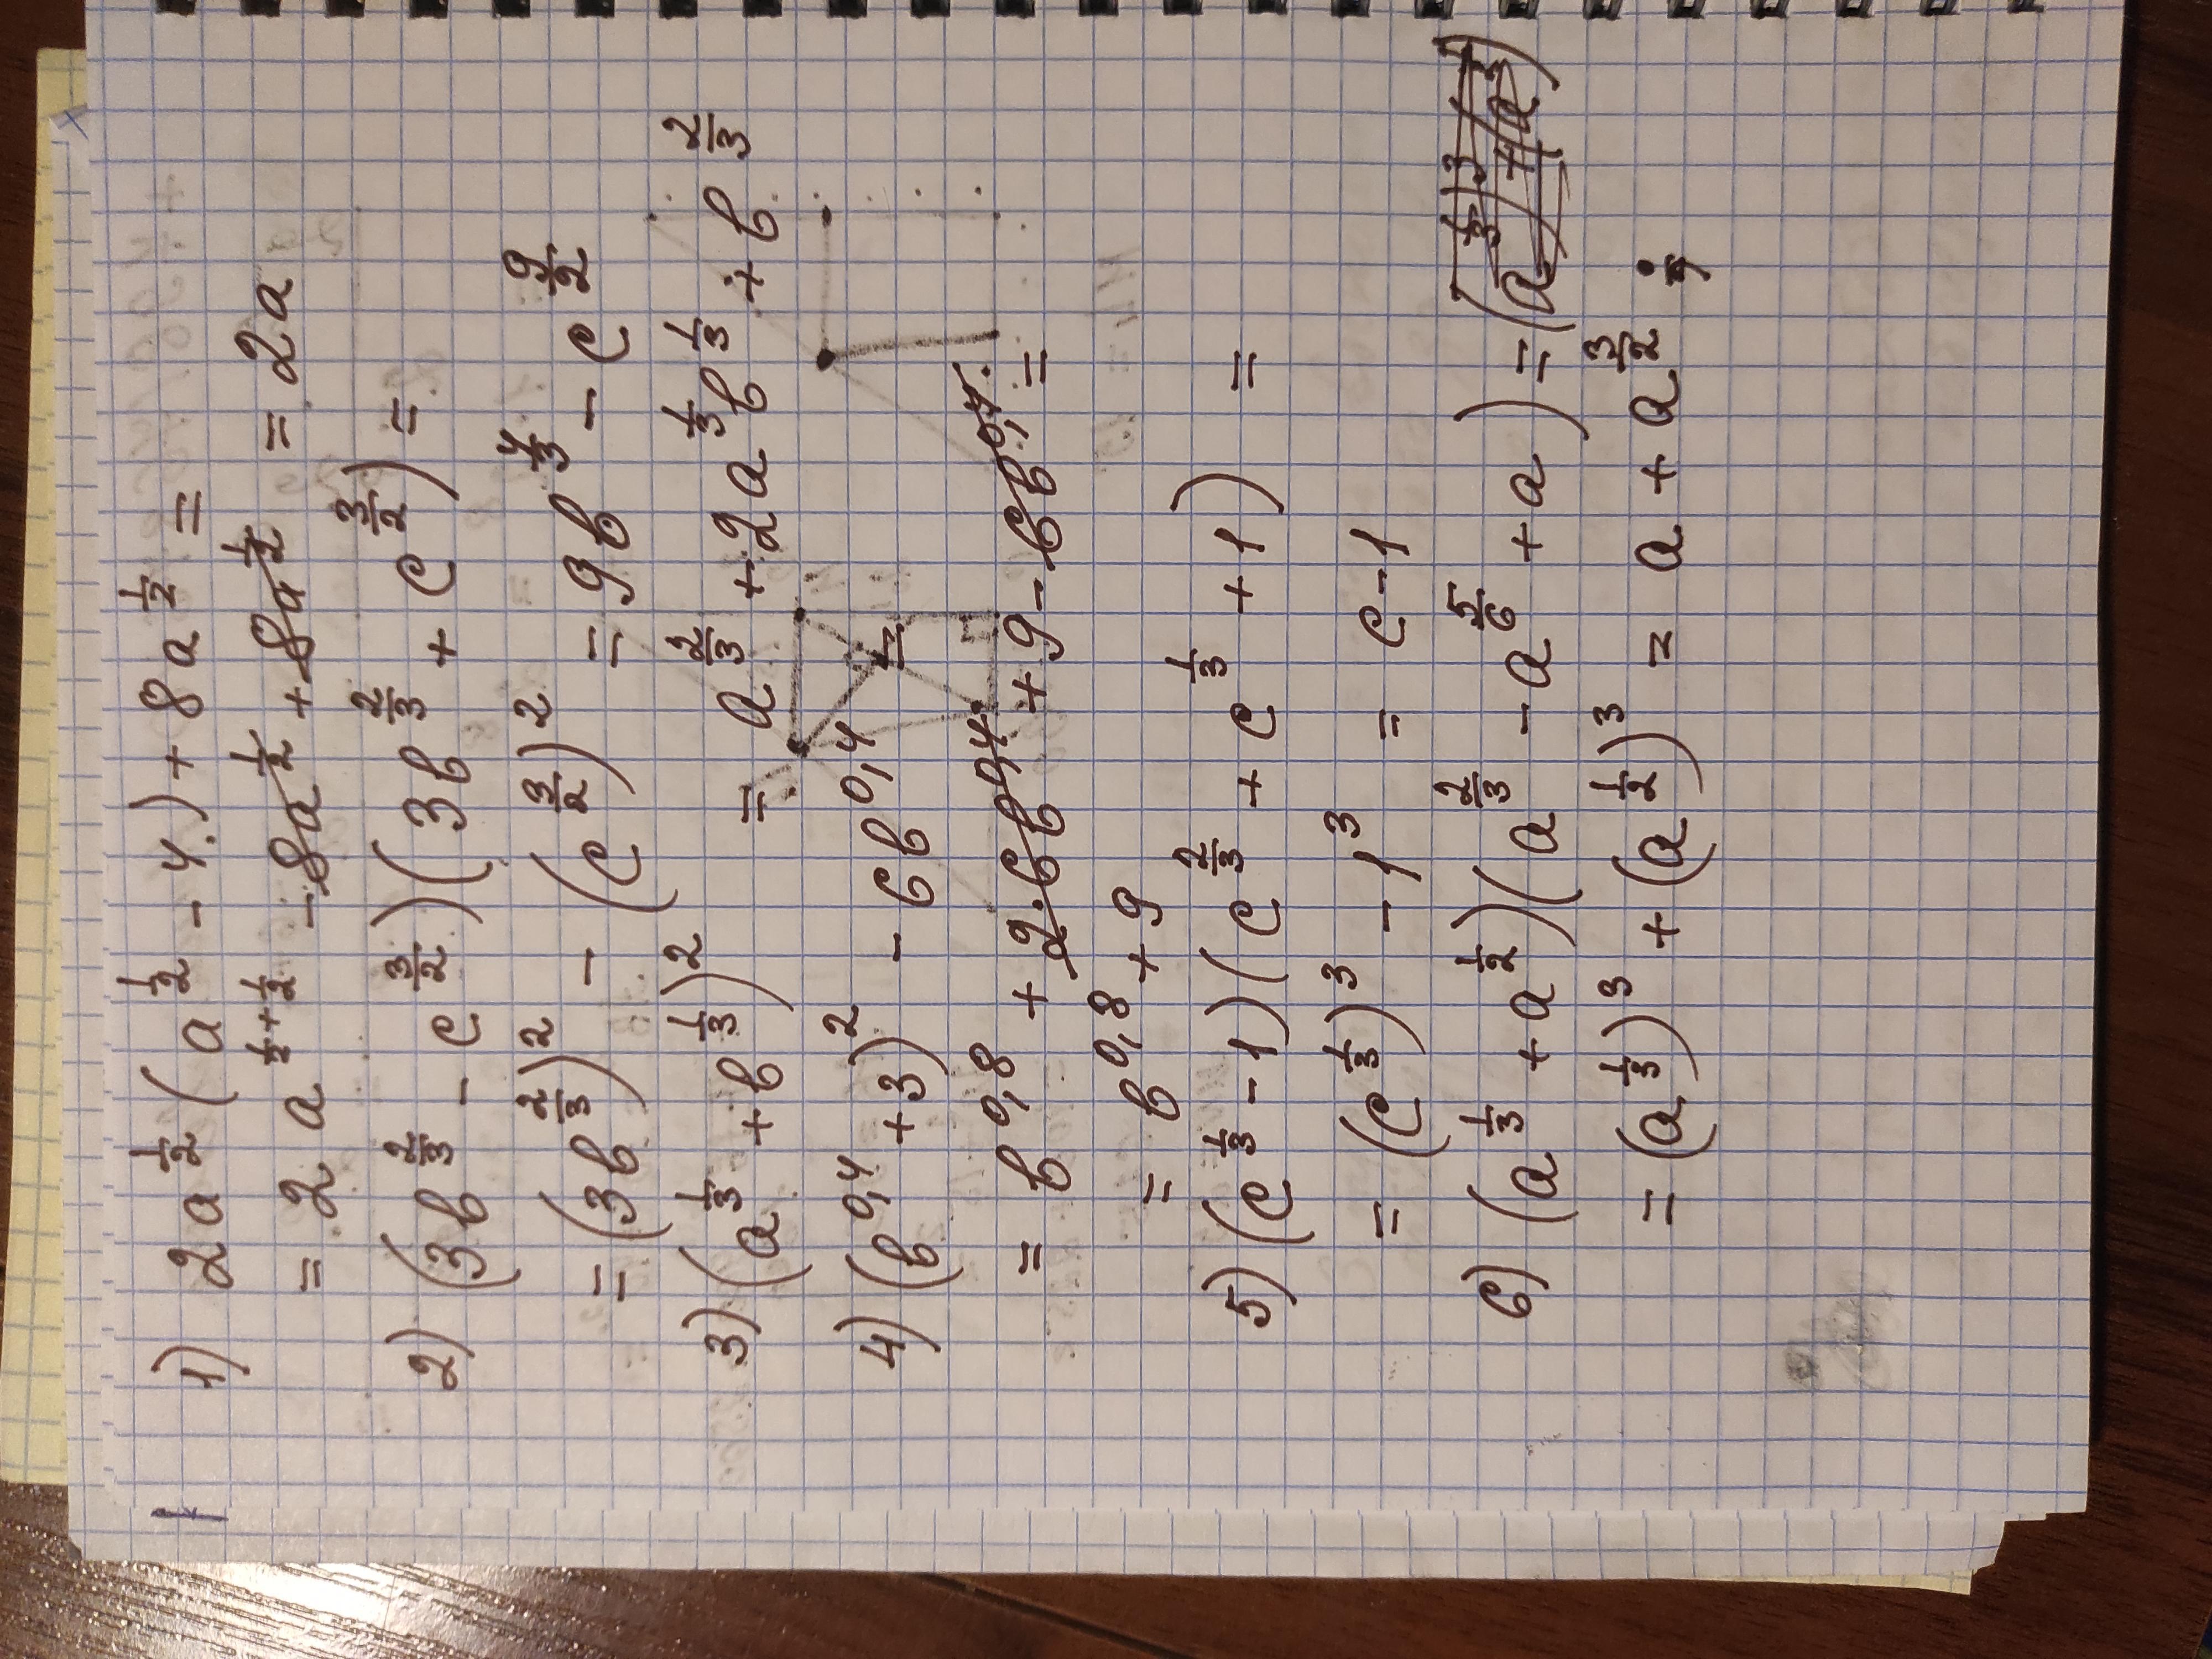 1) 2a^{1/2} (a^{1/2} - 4) + 8a^{1/2} =
= 2a^{1/2 + 1/2} - 8a^{1/2} + 8a^{1/2} = 2a
2) (3b^{2/3} - c^{3/2})(3b^{2/3} + c^{3/2}) =
= (3b^{2/3})^2 - (c^{3/2})^2 = 9b^{4/3} - c^{9/2}
3) (a^{1/3} + b^{1/3})^2 = a^{2/3} + 2a^{1/3}b^{1/3} + b^{2/3}
4) (b^{0,4} + 3)^2 - 6b^{0,4} =
= b^{0,8} + 2·6b^{0,4} + 9 - 6b^{0,4} =
= b^{0,8} + 9
5) (c^{1/3} - 1)(c^{2/3} + c^{1/3} + 1) =
= (c^{1/3})^3 - 1^3 = c - 1
6) (a^{1/3} + a^{1/2})(a^{2/3} - a^{5/6} + a) =
= (a^{1/3})^3 + (a^{1/2})^3 = a + a^{3/2};